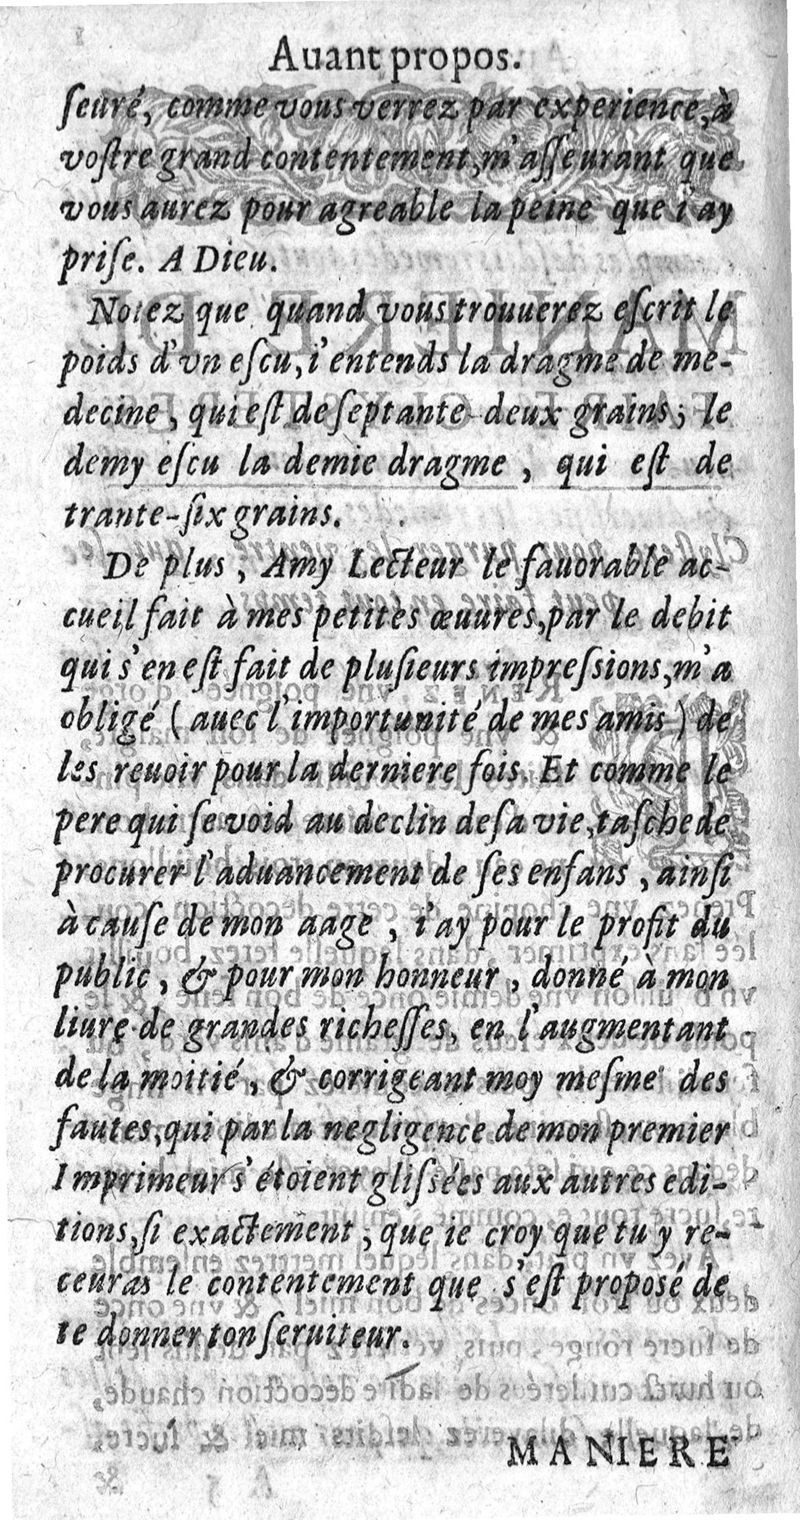 Auant propos.
ſeuré, comme vous verrez par experience, à
voſtre grand contentement, m'aſſeurant que
vous aurez pour agreable la peine que i'ay
priſe. A Dieu.
Notez que quand vous trouuerez eſcrit le
poids d'vn eſcu, i'entends la dragme de me-
decine, qui eſt de ſeptante-deux grains; le
demy eſcu la demie dragme, qui eſt de
trante-ſix grains.
De plus, Amy Lecteur le fauorable ac-
cueil fait à mes petites œuures, par le debit
qui s'en eſt fait de pluſieurs impreſsions, m'a
obligé (auec l'importunité de mes amis) de
les reuoir pour la derniere fois. Et comme le
pere qui ſe void au declin de ſa vie, taſche de
procurer l'aduancement de ſes enfans, ainſi
à cauſe de mon aage, i'ay pour le profit du
public, & pour mon honneur, donné à mon
liure de grandes richeſſes, en l'augmentant
de la moitié, & corrigeant moy meſme des
fautes, qui par la negligence de mon premier
Imprimeur s'étoient gliſsées aux autres edi-
tions, ſi exactement, que ie croy que tu y re-
ceuras le contentement que s'eſt proposé de
te donner ton ſeruiteur.
MANIERE